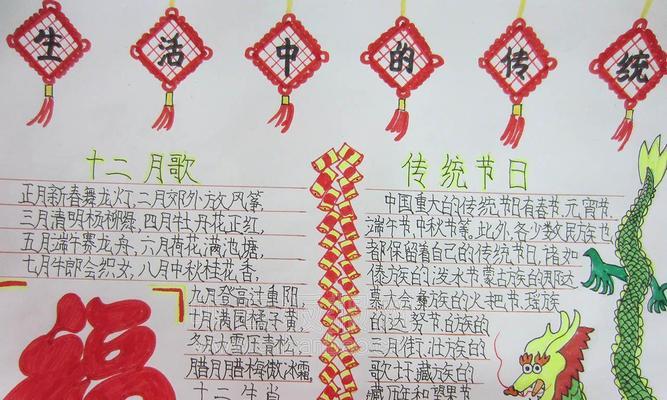 生活中的传统
十二月歌
正月新春舞龙灯,二月郊外放风筝,
三月清明杨柳绿,四月牡丹花正红,
五月端午赛龙舟,六月荷花满池塘,
七月牛郎会织女,八月中秋桂花香,
九月登高过重阳,
十月满园橘子黄,
冬月大雪压青松,
腊月腊梅傲冰霜,
十二生肖
传统节日
中国重大的传统节日有春节、元宵节、
端午节、中秋节等,此外,各少数民族也
都保留着自己的传统节日,诸如
傣族的泼水节、蒙古族的那达
慕大会、彝族的火把节、瑶族
的达努节、白族的
三月街、壮族的
歌圩、藏族的
藏历年和望果节
福